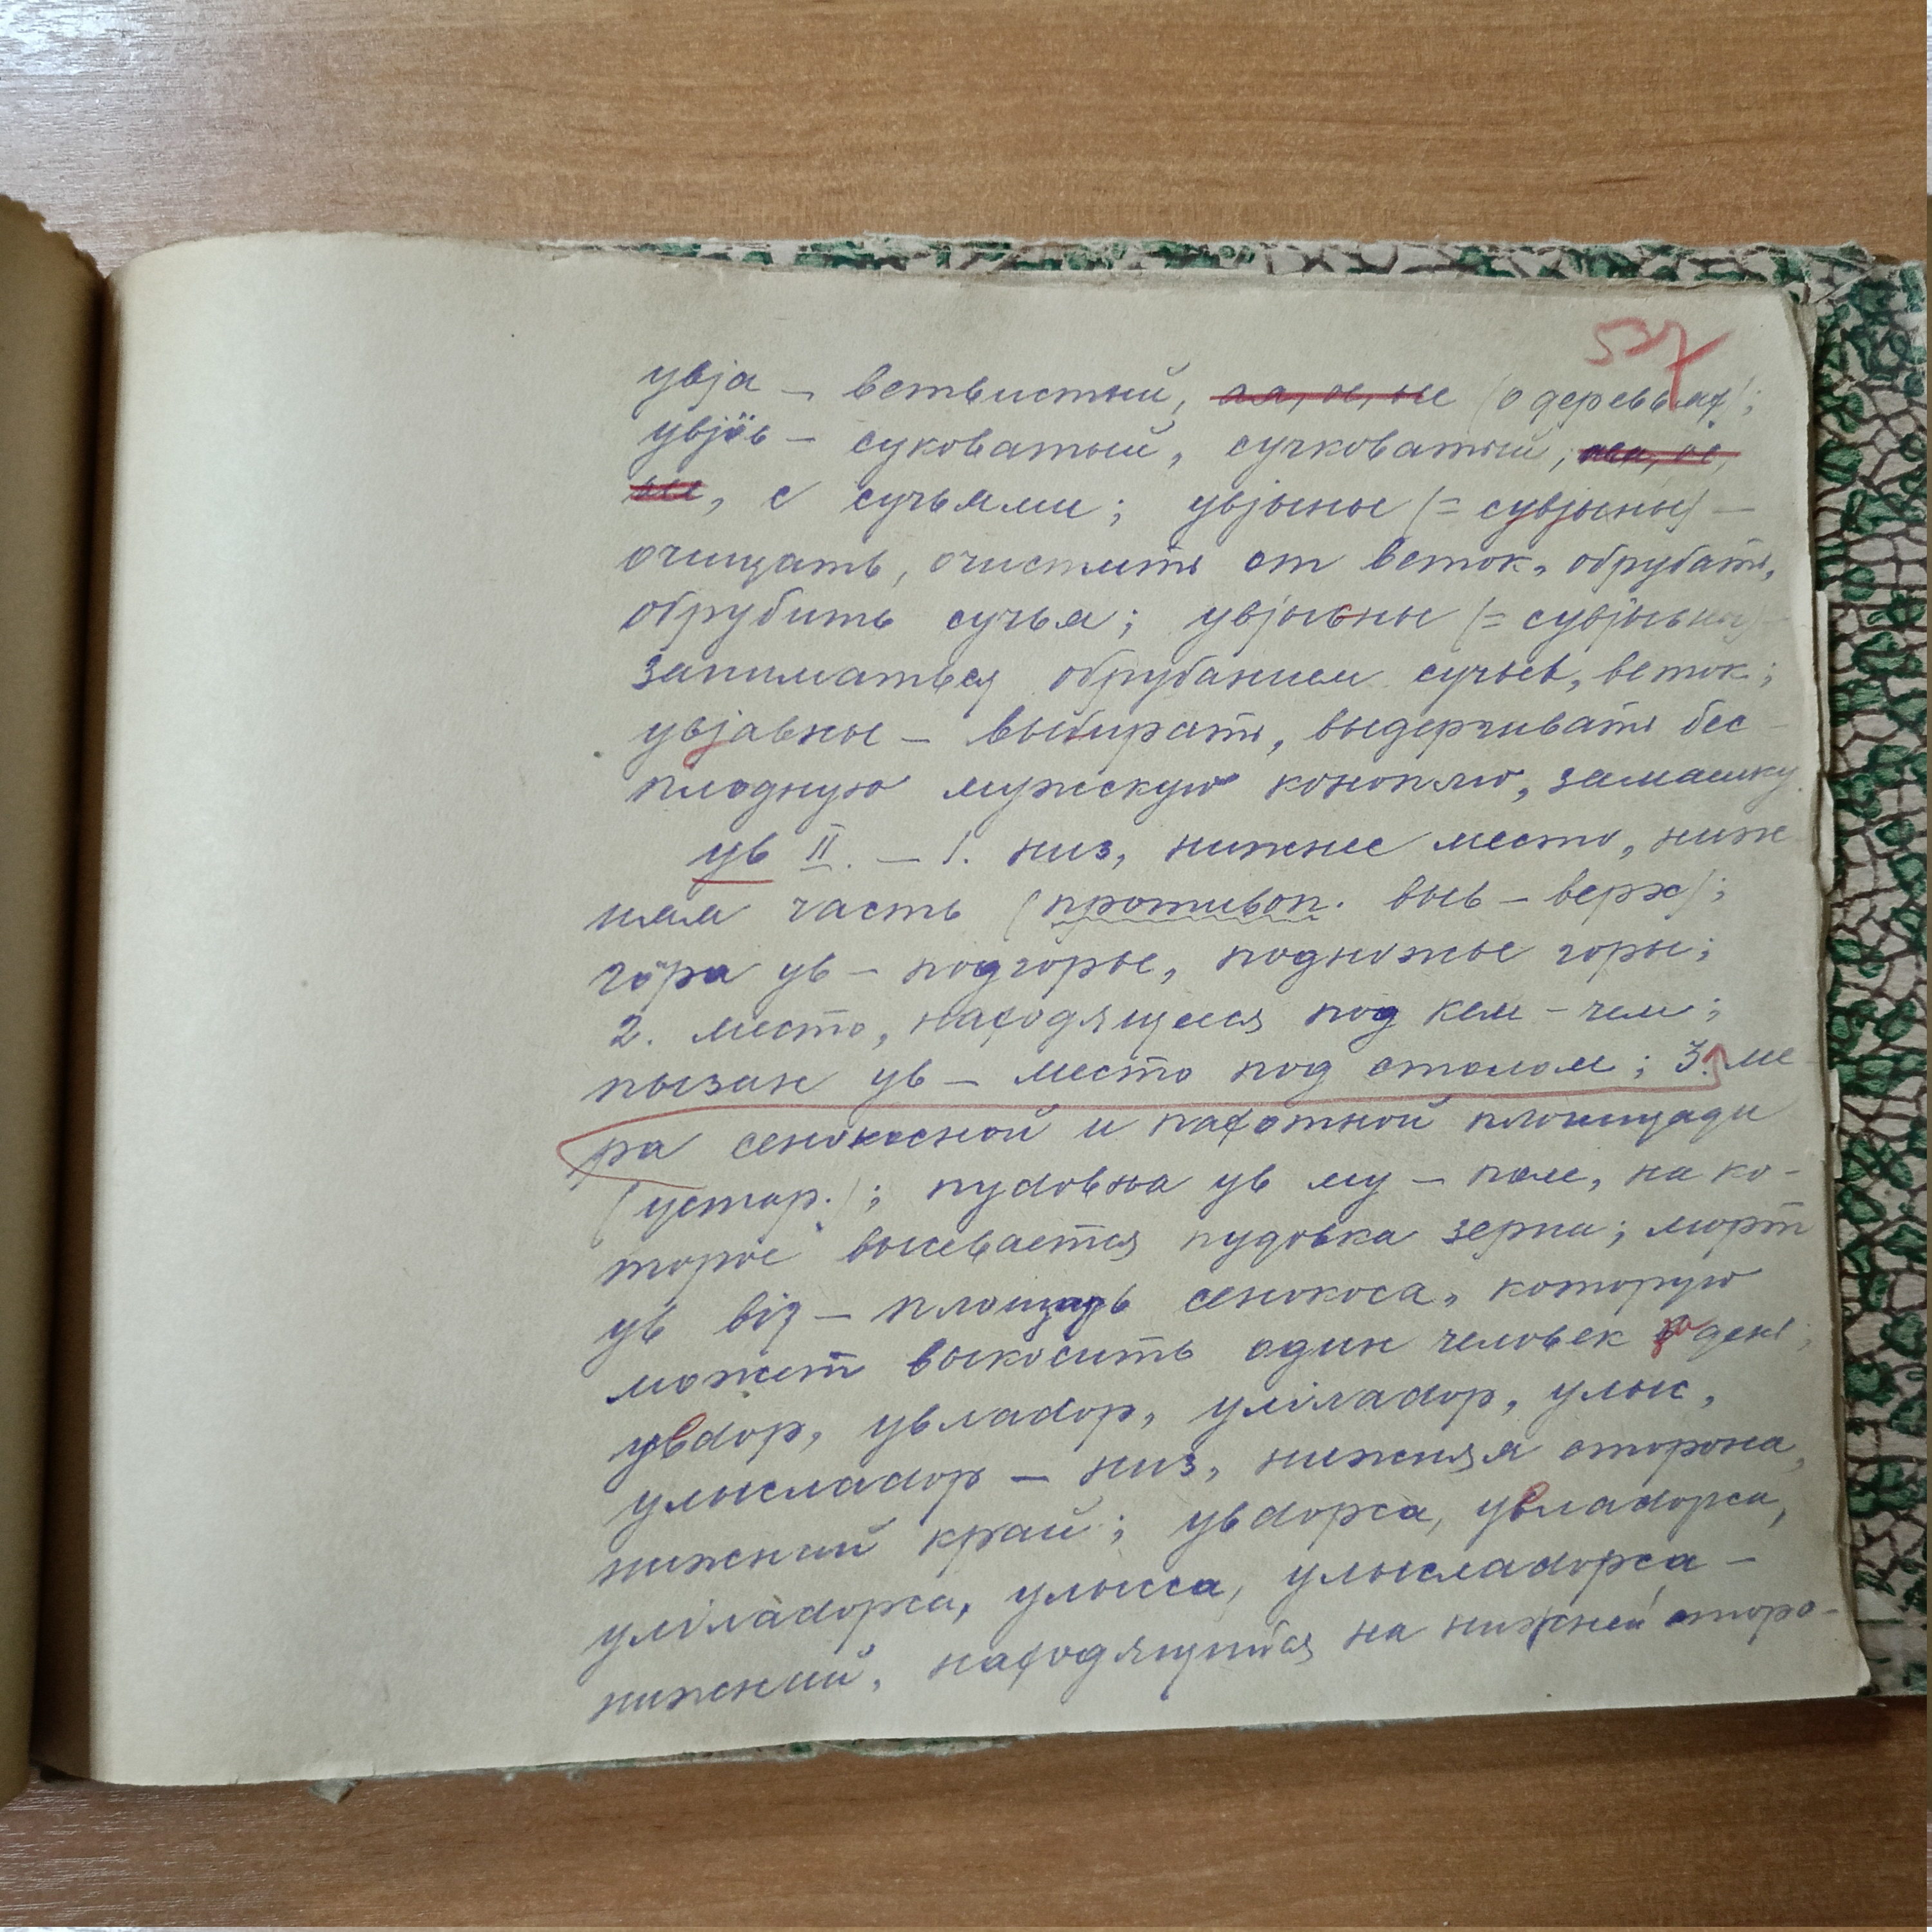 537
увја – ветвистый, ая, ое, ые (о деревьях);
увјӧв – суковатый, сучковатый, ая, ое,
ые, с сучьями; увјыны (= сувјыны) –
очищать, очистить от веток, обрубать,
обрубить сучья; увјысьны (= сувјысьны) –
заниматься обрубанием сучьев, веток;
увјавны – выбирать, выдергивать бес-
плодную мужскую коноплю, замашку.
ув II. – 1. низ, нижнее место, ниж-
няя часть (противоп. выв – верх);
гӧра ув – подгорье, подножье горы;
2. место, находящееся под кем-чем;
пызан ув – место под столом; 3. ме-
ра сенокосной и пахотной площади
(устар.); пудовка ув му – поле, на ко-
торое высевается пудовка зерна; морт
ув віӡ – площадь сенокоса, которую
может выкосить один человек за день;
увдор, увладор, уліладор, улыс,
улысладор – низ, нижняя сторона,
нижний край; увдорса, увладорса,
уліладорса, улысса, улысладорса –
нижний, находящийся на нижней сторо-